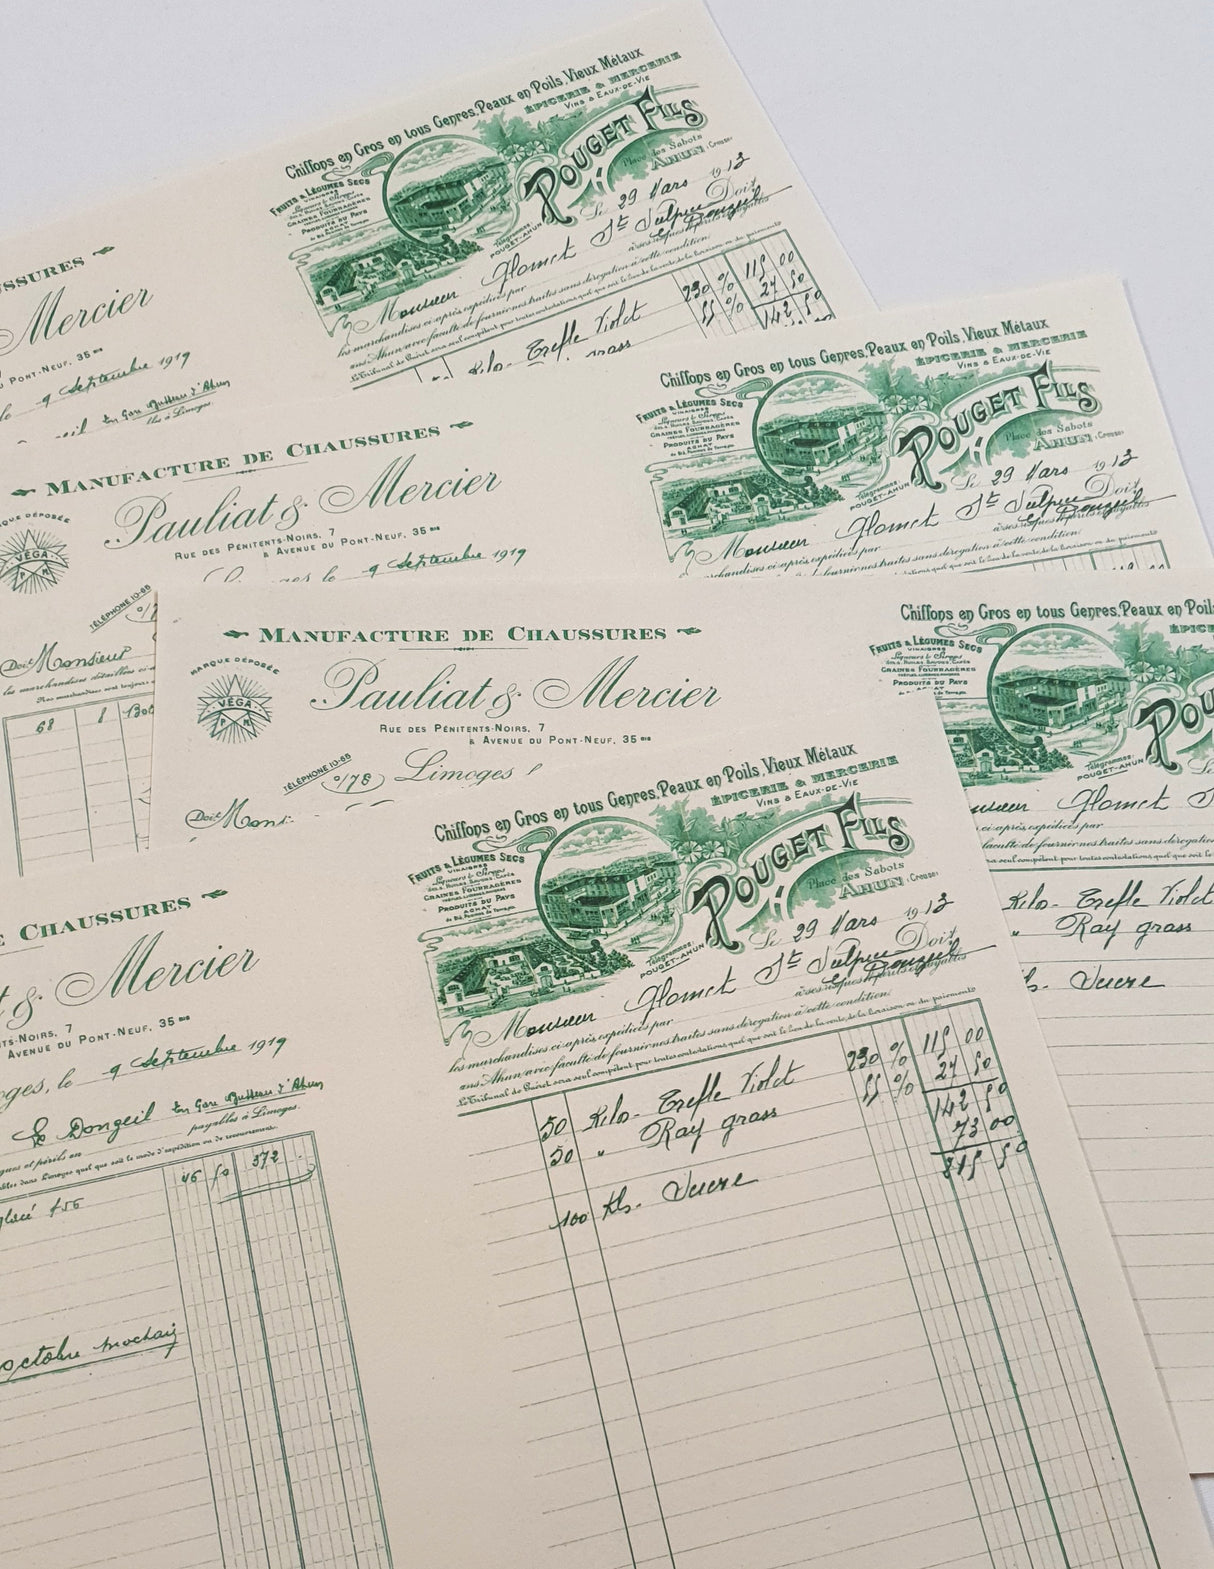 Chiffons en Gros en tous Genres, Peaux en Poils, Vieux Métaux
ÉPICERIE & MERCERIE
VINS & EAUX-DE-VIE
FRUITS & LÉGUMES SECS
VINAIGRES
Liqueurs & Sirops
GRAINES FOURRAGÈRES
PRODUITS DU PAYS
ACHAT
POUGET FILS
Place des Sabots
AHUN (Creuse)
Le 29 Mars 1913
Télégrammes:
POUGET-AHUN
Doit
Monsieur Glomet St Sulpice
les marchandises ci-après expédiées par
à ses risques & périls & payables
ans Ahun avec faculté de fournir nos traites sans dérogation à cette condition.
Le Tribunal de Guéret sera seul compétent pour toutes contestations quel que soit le lieu de la vente, de la livraison ou du paiement
Kilo- Trefle Violet 230 % 115 00
grass 55 % 27 50
142 50
CHAUSSURES
Mercier
PONT-NEUF, 35 bis
9 Septembre 1919
à Limoges.
MANUFACTURE DE CHAUSSURES
Pauliat & Mercier
RUE DES PÉNITENTS-NOIRS, 7
& AVENUE DU PONT-NEUF, 35 bis
MARQUE DÉPOSÉE
VÉGA
P M
9 Septembre 1919
TÉLÉPHONE 10-65
Doit Monsieur
68 1
Chiffons en Gros en tous Genres, Peaux en Poils, Vieux Métaux
ÉPICERIE & MERCERIE
VINS & EAUX-DE-VIE
FRUITS & LÉGUMES SECS
VINAIGRES
Liqueurs & Sirops
GRAINES FOURRAGÈRES
PRODUITS DU PAYS
ACHAT
POUGET FILS
Place des Sabots
AHUN (Creuse)
Le 29 Mars 1913
Télégrammes:
POUGET-AHUN
Doit
Monsieur Glomet St Sulpice
à ses risques & périls & payables
marchandises ci-après expédiées par
MANUFACTURE DE CHAUSSURES
Pauliat & Mercier
RUE DES PÉNITENTS-NOIRS, 7
& AVENUE DU PONT-NEUF, 35 bis
MARQUE DÉPOSÉE
VÉGA
P M
TÉLÉPHONE 10-65
0/78
Limoges
Doit
Chiffons en Gros en tous Genres, Peaux en Poils
FRUITS & LÉGUMES SECS
VINAIGRES
Liqueurs & Sirops
GRAINES FOURRAGÈRES
PRODUITS DU PAYS
POU
Télégrammes:
POUGET-AHUN
Glomet
ci-après expédiées par
Kilo- Trefle Violet
" Ray grass
Sucre
CHAUSSURES
& Mercier
NOIRS, 7
AVENUE DU PONT-NEUF, 35 bis
Limoges, le 9 Septembre 1919
payables à Limoges.
46 50 372
glacé
octobre prochain
Chiffons en Gros en tous Genres, Peaux en Poils, Vieux Métaux
ÉPICERIE & MERCERIE
VINS & EAUX-DE-VIE
FRUITS & LÉGUMES SECS
VINAIGRES
Liqueurs & Sirops
GRAINES FOURRAGÈRES
PRODUITS DU PAYS
ACHAT
POUGET FILS
Place des Sabots
AHUN (Creuse)
Le 29 Mars 1913
Télégrammes:
POUGET-AHUN
Doit
Monsieur Glomet St Sulpice
à ses risques & périls & payables
les marchandises ci-après expédiées par
ans Ahun avec faculté de fournir nos traites sans dérogation à cette condition.
Le Tribunal de Guéret sera seul compétent pour toutes contestations quel que soit le lieu de la vente, de la livraison ou du paiement
50 Kilo- Trefle Violet 230 % 115 00
50 " Ray grass 55 % 27 50
142 50
100 Ks. Sucre 73 00
215 50